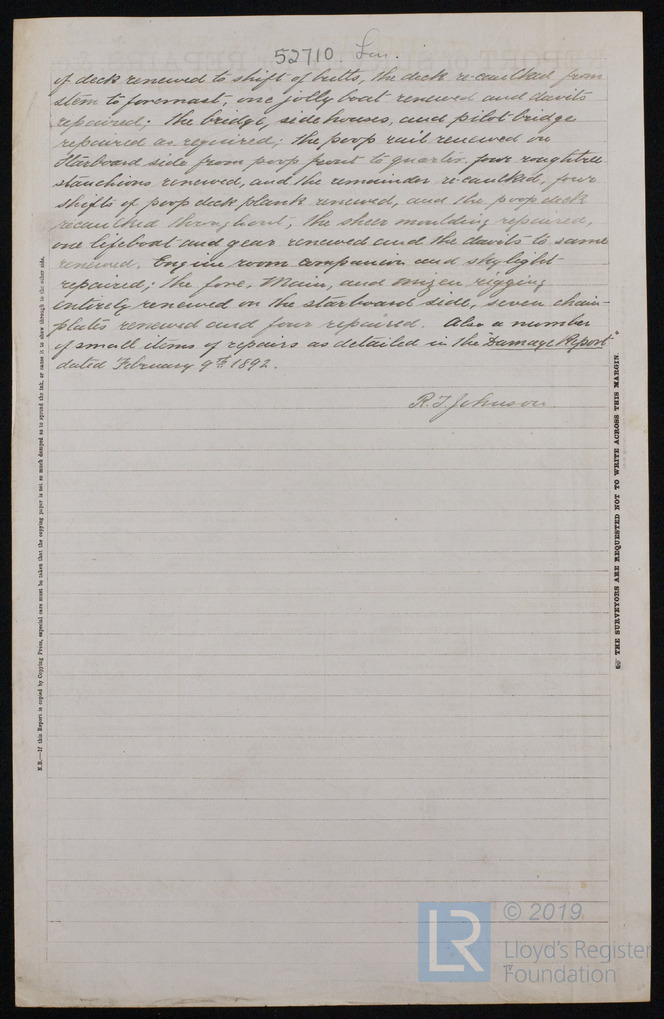 52710. Lon.
of deck renewed to shift of butts, the deck re-caulked from
stem to foremast; one jolly boat renewed and davits
repaired; the bridge, side houses, and pilot bridge
repaired as required; the poop rail renewed on
Starboard side from poop front to quarter. four roughtree
stanchions renewed, and the remainder re-caulked, four
shifts of poop deck plank renewed, and the poop deck
recaulked throughout; the sheer moulding repaired,
one lifeboat and gear renewed and the davits to same
renewed. Engine room companion and skylight
repaired; the fore, main, and mizen rigging
entirely renewed on the starboard side, seven chain-
plates renewed and four repaired. Also a number
of small items of repairs as detailed in the Damage Report
dated February 9th 1892.
R. T. Johnson
N.B.—If this Report is copied by Copying Press, especial care must be taken that the copying paper is not so much damped as to spread the ink, or cause it to show through to the other side.
THE SURVEYORS ARE REQUESTED NOT TO WRITE ACROSS THIS MARGIN.
LR
© 2019
Lloyd's Register
Foundation